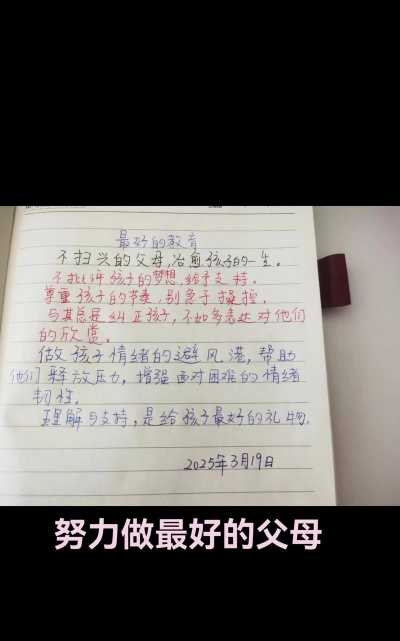 最好的教育
不扫兴的父母,治愈孩子的一生。
不批评孩子的梦想,给予支持。
尊重孩子的节奏,别急于操控。
与其总是纠正孩子,不如多表达对他们
的欣赏。
做孩子情绪的避风港,帮助
他们释放压力,增强面对困难的情绪
韧性。
理解与支持,是给孩子最好的礼物。
2025年3月19日
努力做最好的父母